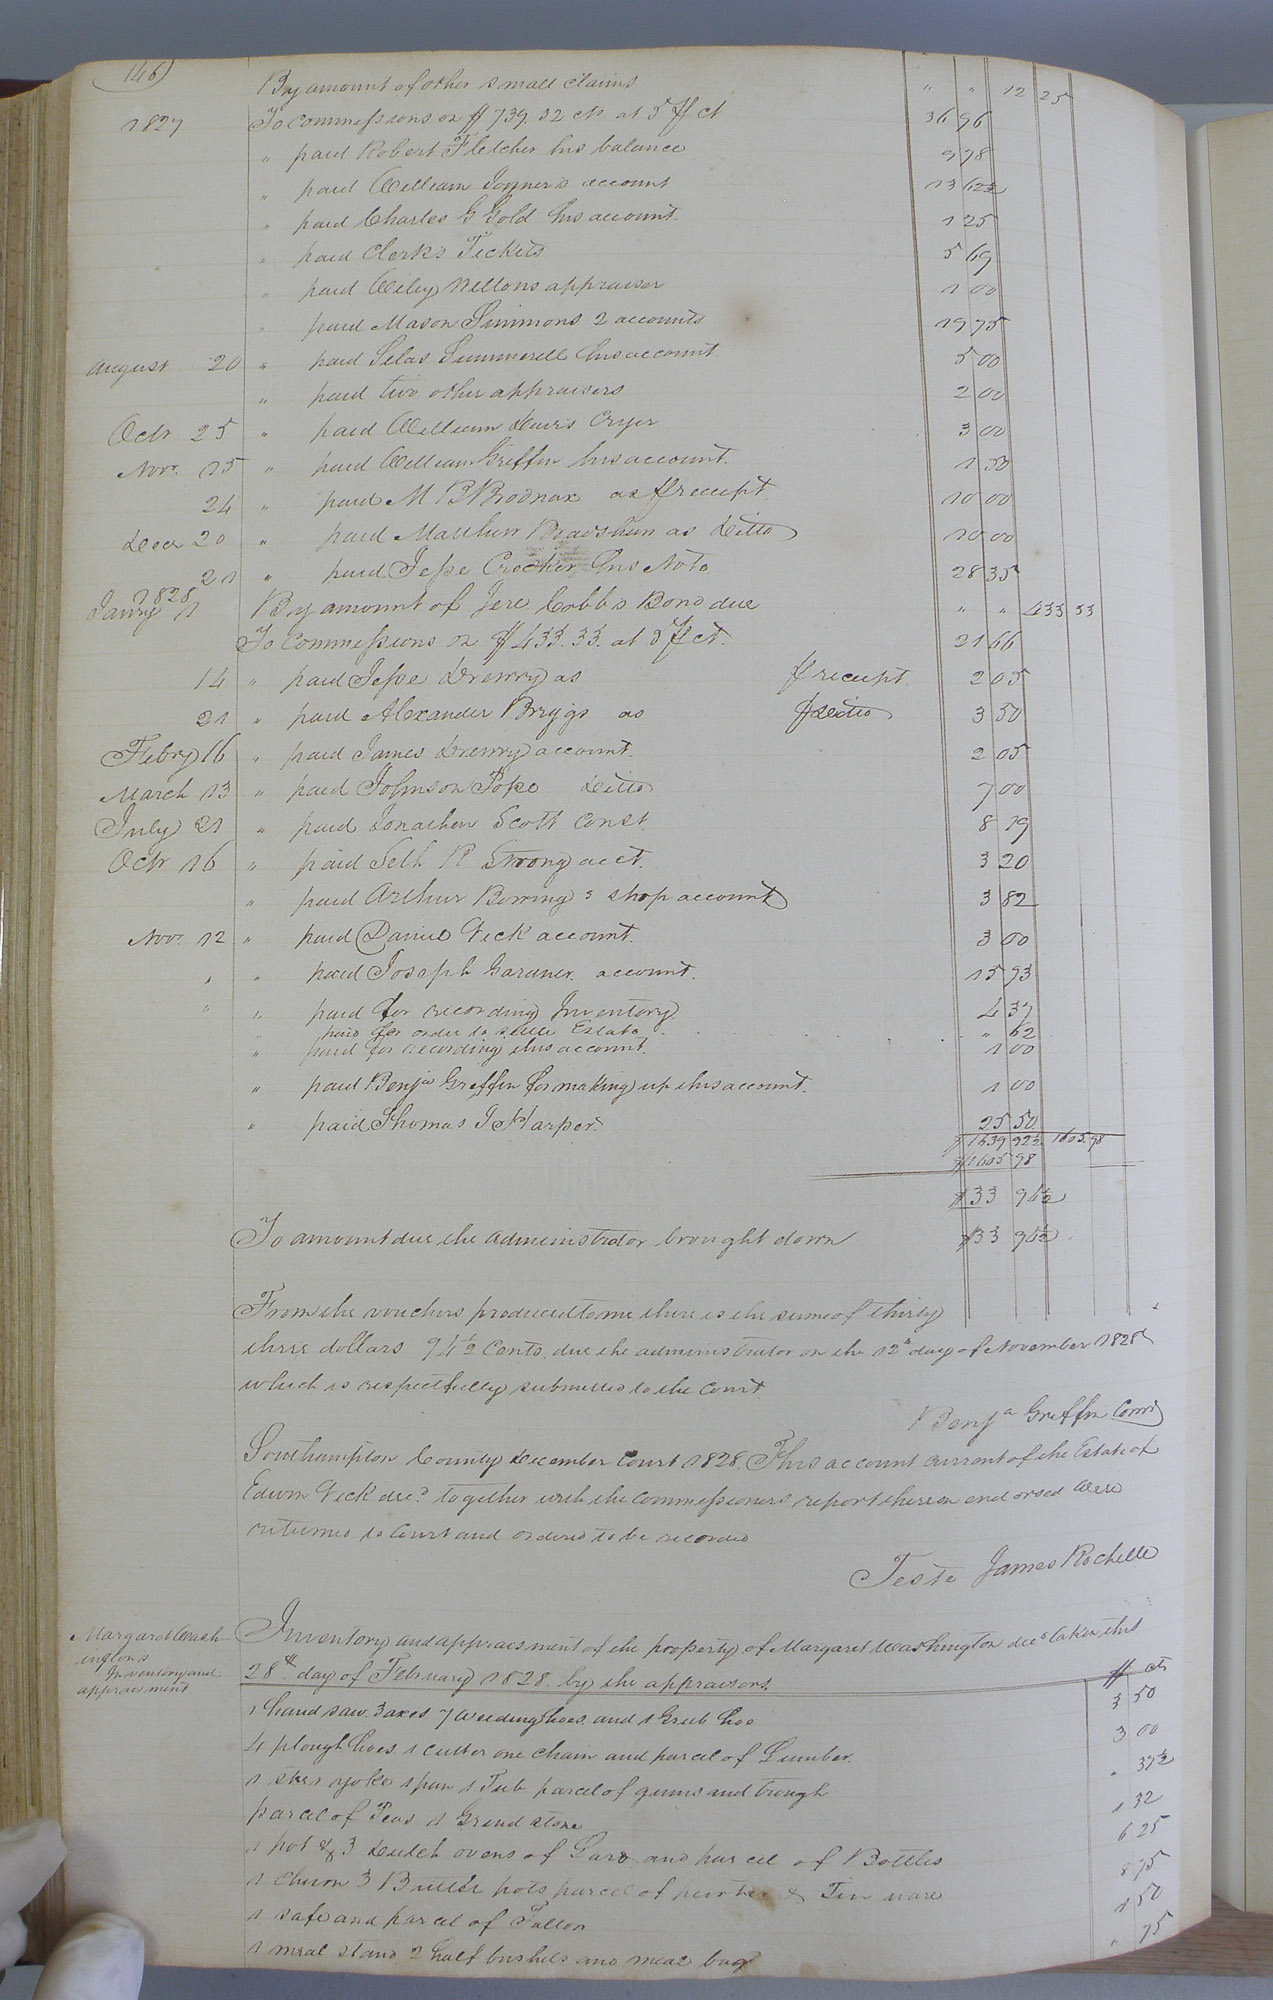 146
By amount of other small claims " " 12 25
1827 To Commissions on $739 32 cts at 5 ⅌ ct 36 96
" paid Robert Fletcher his balance 9 78
" paid William Joyner's account 13 62½
" paid Charles G Gold his account. 1 25
" paid Clerks Tickets 5 69
" paid Wiley Nelloms appraiser 1 00
" paid Mason Simmons 2 accounts 19 75
August 20 " paid Silas Summerell his account 5 00
" paid two other appraisers 2 00
Octr 25 " paid William Lewis Cryer 3 00
Novr. 15 " paid William Griffin his account. 1 50
24 " paid M B Brodnax as ⅌ receipt 10 00
Decr 20 " paid Matthew Bradshaw as Ditto 10 00
21 " paid Jesse Crocker his Note 28 35
1828
Janry 1 By amount of Jere Cobbs Bond due " " 433 33
To Commissions on $433.33. at 5 ⅌ ct. 21 66
14 " paid Jesse Drewry as ⅌ receipt. 2 05
21 " paid Alexander Briggs as ⅌ Ditto 3 50
Febry 16 " paid James Drewry account. 2 05
March 13 " paid Johnson Pope Ditto 7 00
July 21 " paid Jonathan Scott Const. 8 19
Octr 16 " paid Seth R Strong acct. 3 20
" paid Arthur Bowing's shop account 3 82
Novr. 12 " paid Daniel Vick account. 3 00
" " paid Joseph Gardner account. 15 93
" " paid for recording Inventory 4 37
paid for order to settle Estate " 62
" paid for recording this account. 1 00
" paid Benja Griffin for making up this account. 1 00
" paid Thomas J Harper. 25 50
$1639 92½ 1605.98
$1605 98
$33 94½
To amount due the administrator brought down $33 94½
From the vouchers produced to me there is the sum of thirty
three dollars 94½ Cents due the administrator on the 12th day of November 1828
which is respectfully submitted to the Court
Benja Griffin Comr
Southampton County December Court 1828. This account current of the Estate of
Edwin Vick decd together with the Commissioners report thereon endorsed were
returned to Court and ordered to be recorded
Teste James Rochelle
Margaret Wash-
ingtons
Inventory and
appraisment
Inventory and appraisment of the property of Margaret Washington decd taken this
28th day of February 1828. by the appraisors. $ cts
1 hand saw 3 axes 7 Weeding hoes and 1 Grub hoe 3 50
4 plough hoes 1 cutter one chain and parcel of Lumber. 3 00
1 steer yoke 1 pan 1 Tub parcel of gums and trough " 37½
parcel of Peas 1 Grind stone 1 32
1 pot & 3 Dutch ovens of Lard and parcel of Bottles 6 25
1 churn 3 Butter pots parcel of pewter & Tin ware 8 75
1 safe and parcel of Tallow 1 50
1 meal stand 2 half bushels and meal bag " 75